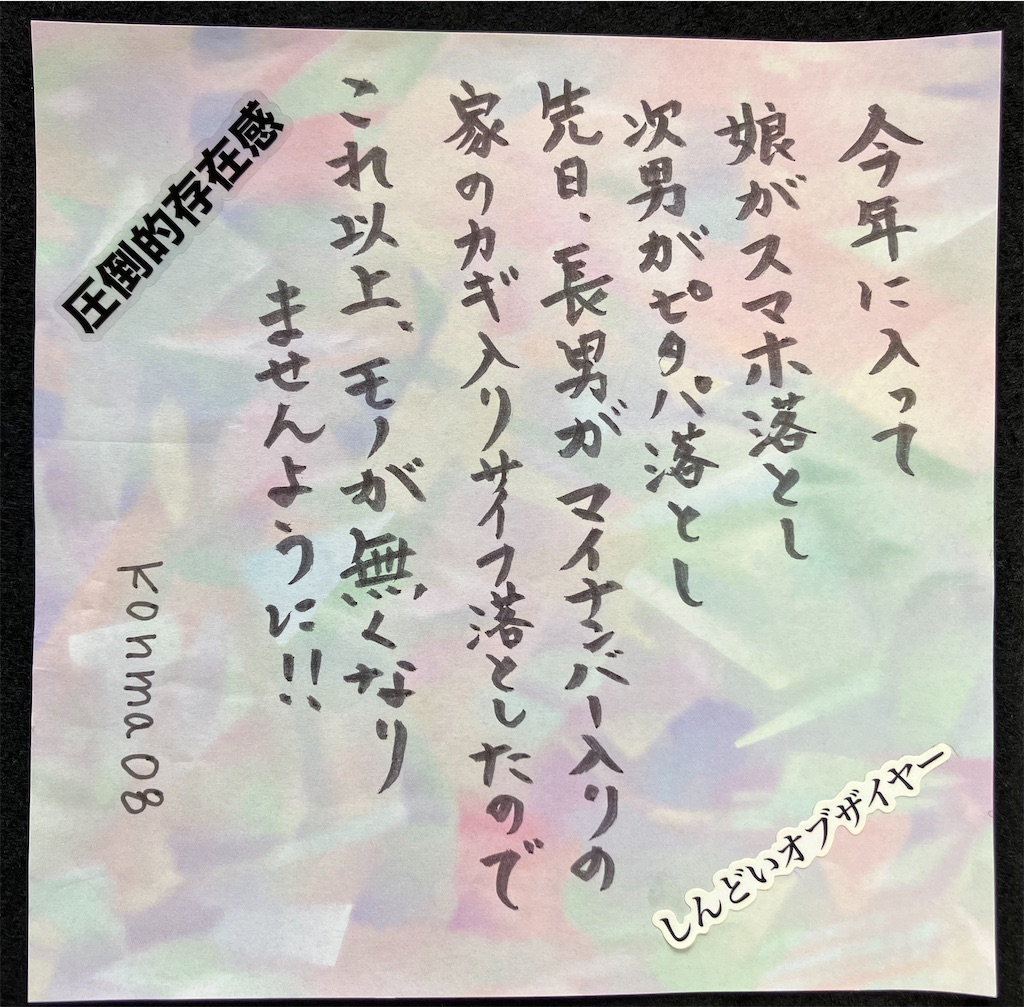 今年に入って
娘がスマホ落とし
次男がピタパ落とし
先日、長男がマイナンバー入りの
家のカギ入りサイフ落としたので
これ以上、モノが無くなり
ませんように!!
konma08
圧倒的存在感
しんどいオブザイヤー